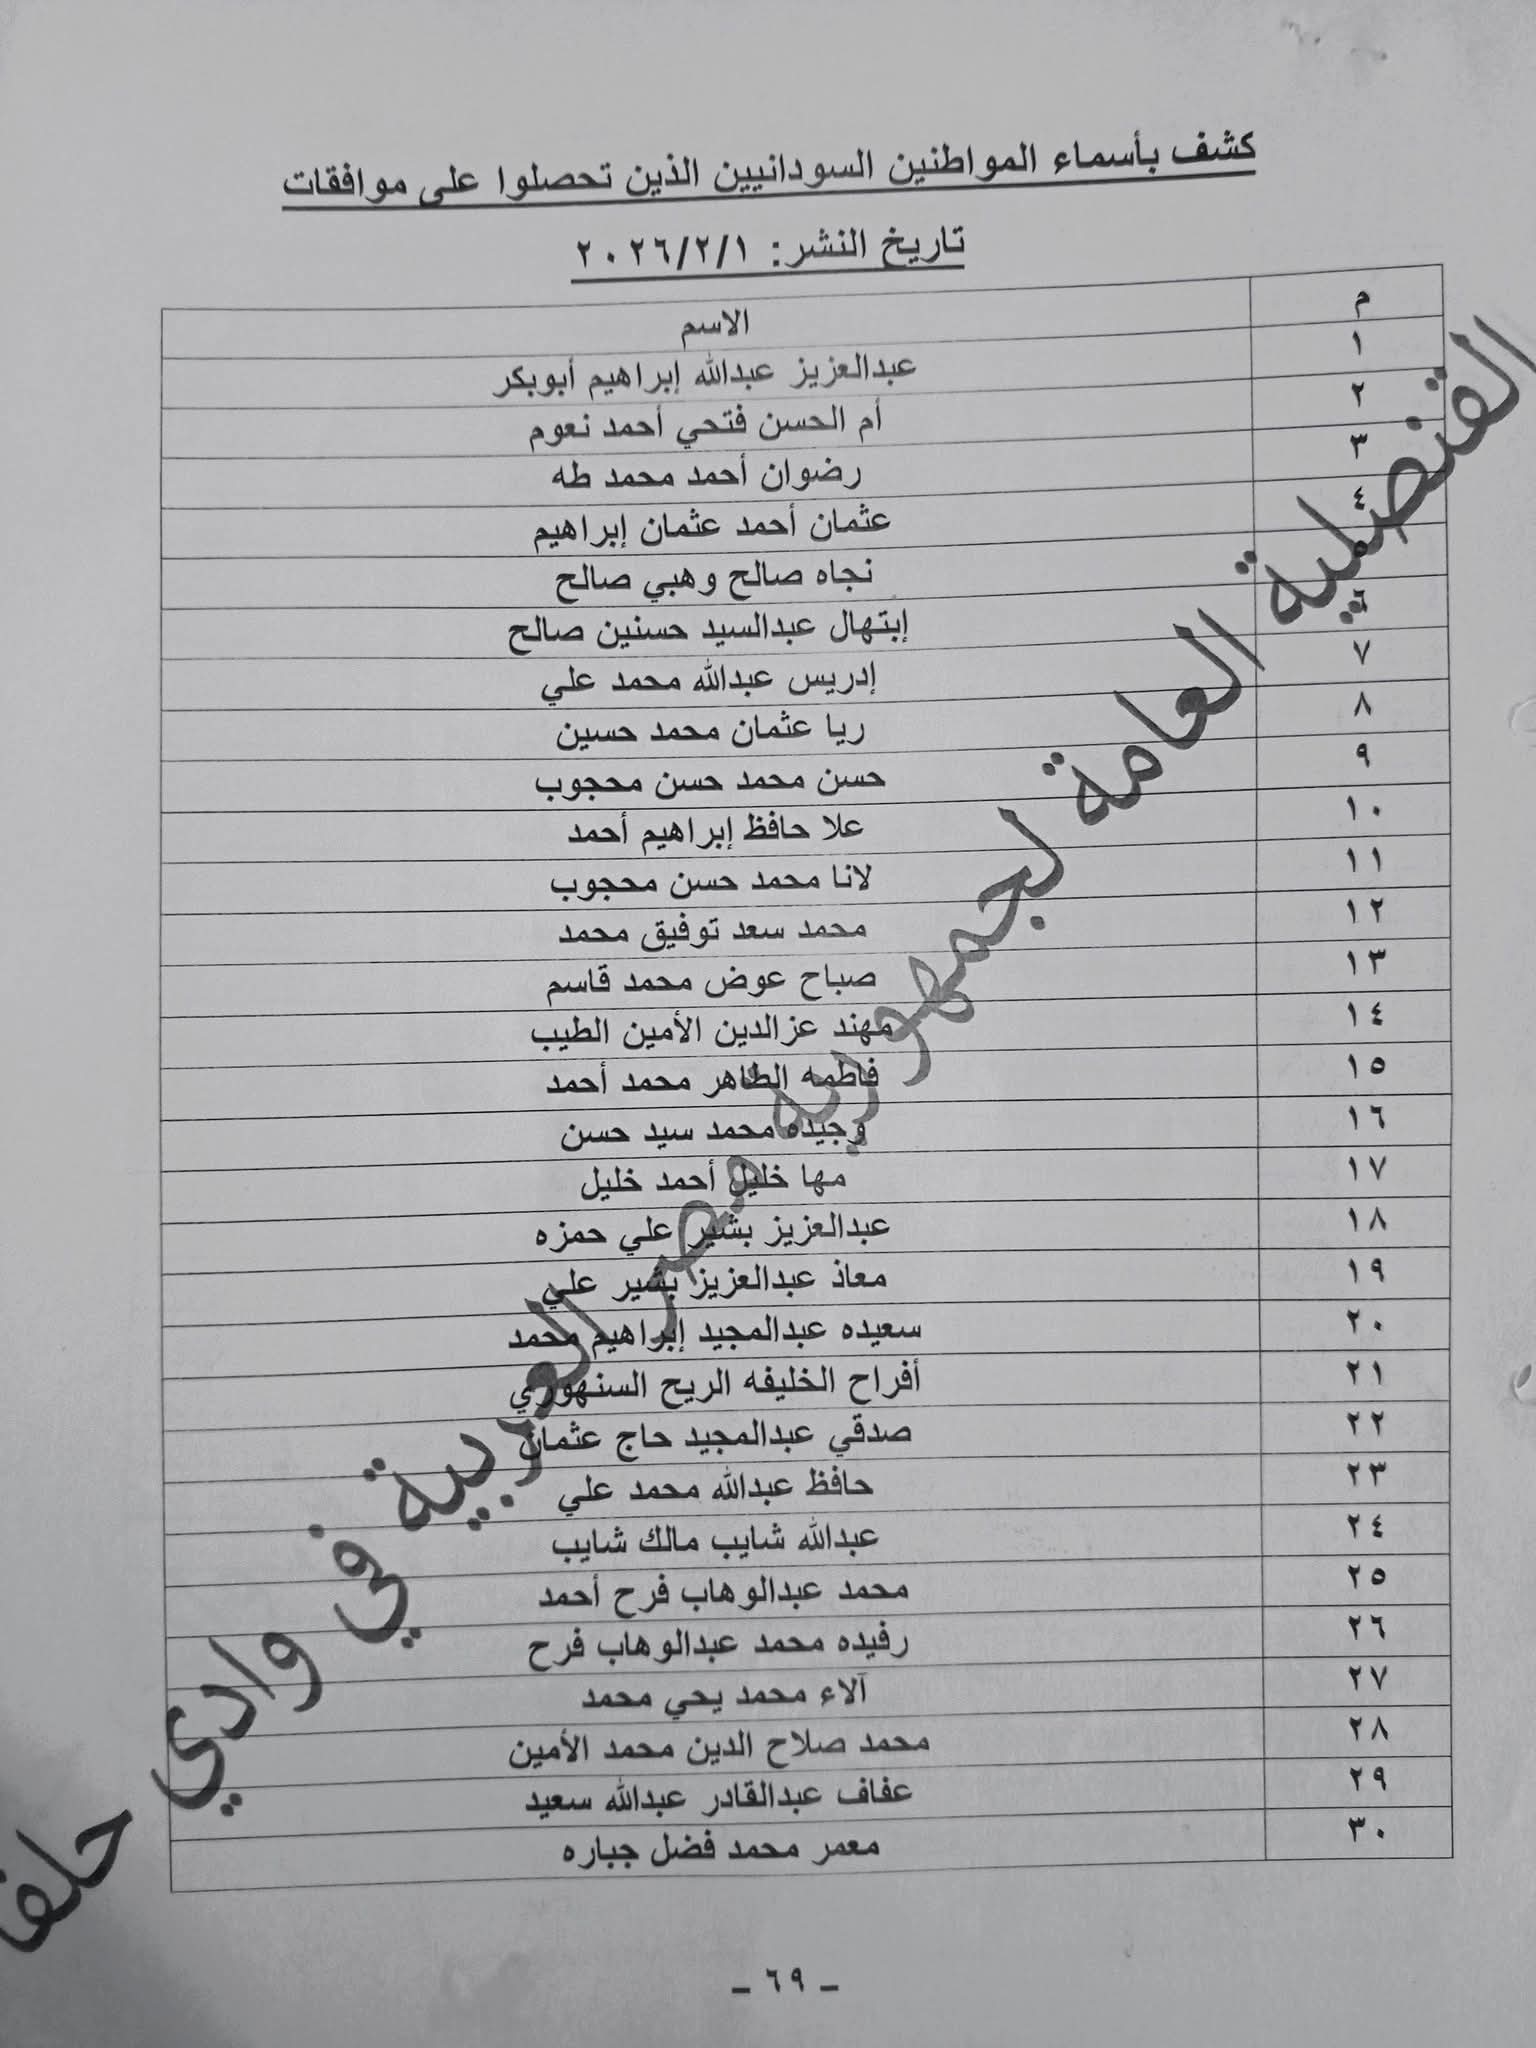 كشف بأسماء المواطنين السودانيين الذين تحصلوا على موافقات
تاريخ النشر: ٢٠٢٦/٢/١
م الاسم
١ عبدالعزيز عبدالله إبراهيم أبوبكر
٢ أم الحسن فتحي أحمد نعوم
٣ رضوان أحمد محمد طه
٤ عثمان أحمد عثمان إبراهيم
نجاه صالح وهبي صالح
٦ إبتهال عبدالسيد حسنين صالح
٧ إدريس عبدالله محمد علي
٨ ريا عثمان محمد حسين
٩ حسن محمد حسن محجوب
١٠ علا حافظ إبراهيم أحمد
١١ لانا محمد حسن محجوب
١٢ محمد سعد توفيق محمد
١٣ صباح عوض محمد قاسم
١٤ مهند عزالدين الأمين الطيب
١٥ فاطمه الطاهر محمد أحمد
١٦ وجيده محمد سيد حسن
١٧ مها خليل أحمد خليل
١٨ عبدالعزيز بشير علي حمزه
١٩ معاذ عبدالعزيز بشير علي
٢٠ سعيده عبدالمجيد إبراهيم محمد
٢١ أفراح الخليفه الريح السنهوري
٢٢ صدقي عبدالمجيد حاج عثمان
٢٣ حافظ عبدالله محمد علي
٢٤ عبدالله شايب مالك شايب
٢٥ محمد عبدالوهاب فرح أحمد
٢٦ رفيده محمد عبدالوهاب فرح
٢٧ آلاء محمد يحي محمد
٢٨ محمد صلاح الدين محمد الأمين
٢٩ عفاف عبدالقادر عبدالله سعيد
٣٠ معمر محمد فضل جباره
القنصلية العامة لجمهورية مصر العربية في وادي حلفا
- ٦٩ -